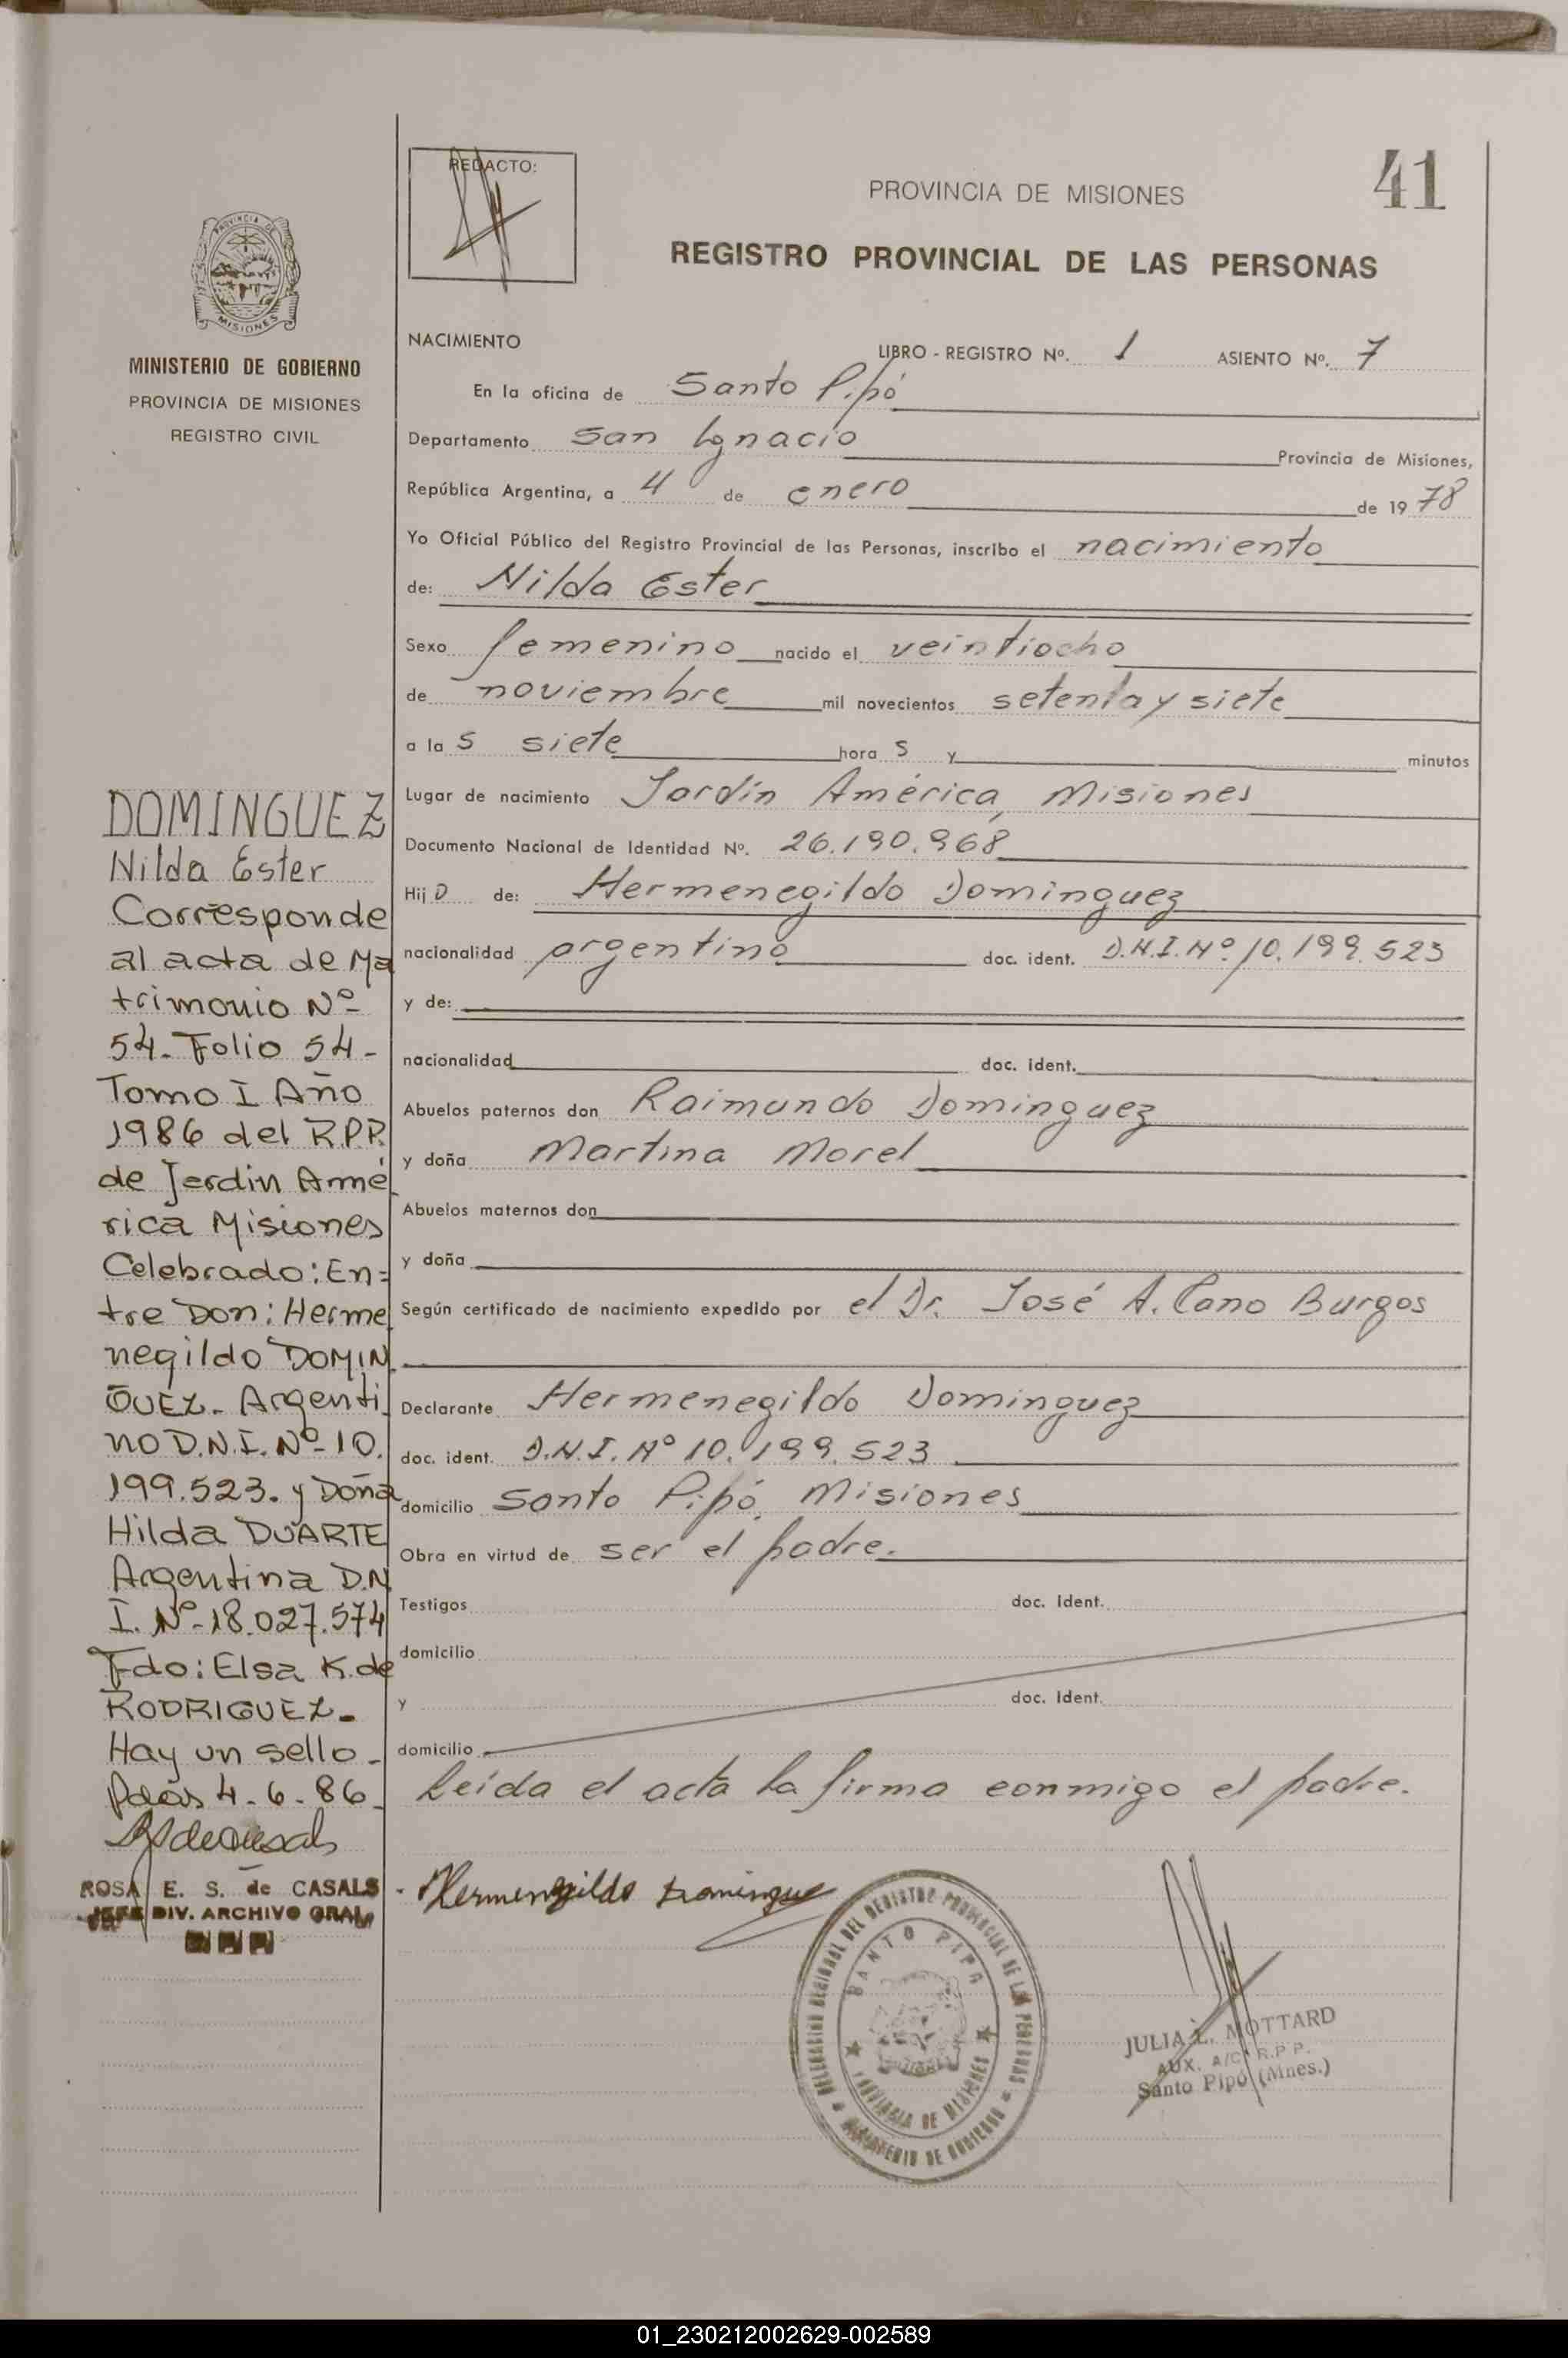 41
REDACTO:
PROVINCIA DE MISIONES
REGISTRO PROVINCIAL DE LAS PERSONAS
PROVINCIA DE
MISIONES
MINISTERIO DE GOBIERNO
PROVINCIA DE MISIONES
REGISTRO CIVIL
NACIMIENTO
LIBRO - REGISTRO Nº. 1 ASIENTO Nº. 7
En la oficina de Santo Pipó
Departamento San Ignacio Provincia de Misiones,
República Argentina, a 4 de enero de 1978
Yo Oficial Público del Registro Provincial de las Personas, inscribo el nacimiento
de: Nilda Ester
Sexo femenino nacido el veintiocho
de noviembre mil novecientos setenta y siete
a la s siete hora s y minutos
Lugar de nacimiento Jardín América, Misiones
Documento Nacional de Identidad Nº. 26.190.968
Hij a de: Hermenegildo Dominguez
nacionalidad argentino doc. ident. D.N.I. Nº 10.199.523
y de:
nacionalidad doc. ident.
Abuelos paternos don Raimundo Dominguez
y doña Martina Morel
Abuelos maternos don
y doña
Según certificado de nacimiento expedido por el Dr. José A. Cano Burgos
Declarante Hermenegildo Dominguez
doc. ident. D.N.I. Nº 10.199.523
domicilio Santo Pipó, Misiones
Obra en virtud de ser el padre.
Testigos doc. ident.
domicilio
y doc. ident.
domicilio
Leída el acta la firma conmigo el padre.
Hermenegildo Dominguez
DELEGACION REGIONAL DEL REGISTRO PROVINCIAL DE LAS PERSONAS
MINISTERIO DE GOBIERNO
SANTO PIPO
PROVINCIA DE MISIONES
JULIA L. MOTTARD
AUX. A/C. R.P.P.
Santo Pipó (Mnes.)
DOMINGUEZ
Nilda Ester
Corresponde
al acta de Ma
trimonio Nº
54. Folio 54-
Tomo I Año
1986 del R.P.P.
de Jardin Amé
rica Misiones
Celebrado: En=
tre Don: Herme
negildo DOMIN
GUEZ. Argenti
no D.N.I. Nº 10.
199.523. y Doña
Hilda DUARTE
Argentina D.N.
I. Nº-18.027.574
Fdo: Elsa K. de
RODRIGUEZ.
Hay un sello-
Pdas 4-6-86-
ROSA E. S. de CASALS
JEFE DIV. ARCHIVO GRAL.
01_230212002629-002589